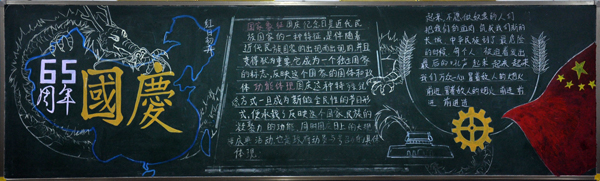 65
周年
國慶
国家象征国庆纪念日是近代民
族国家的一种特征,是伴随着
近代民族国家的出现而出现的,并且
变得尤为重要。它成为一个独立国家
的标志,反映这个国家的国体和政
体 功能体现国庆这种特殊纪念
方式一旦成为新的全民性的节日形
式,便承载了反映这个国家民族的
凝聚力的功能。同时国庆日上的大规
模庆典活动,也是政府动员与号召力的具体
体现
起来,不愿做奴隶的人们
把我们的血肉,筑成我们新的
长城,中华民族到了最危险
的时候,每个人被迫着发出
最后的吼声,起来,起来,起来
我们万众一心,冒着敌人的炮火
前进,冒着敌人的炮火,前进,前
进,前进,进